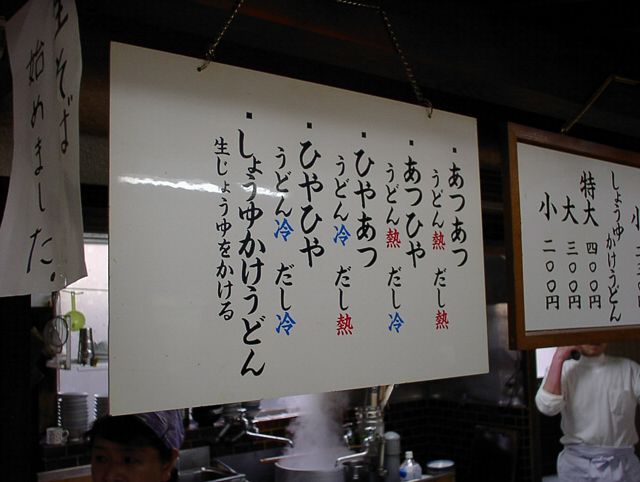 生そば
始めました。
▪あつあつ
うどん熱 だし熱
▪あつひや
うどん熱 だし冷
▪ひやあつ
うどん冷 だし熱
▪ひやひや
うどん冷 だし冷
▪しょうゆかけうどん
生じょうゆをかける
小
しょうゆかけうどん
特大 四〇〇円
大 三〇〇円
小 二〇〇円